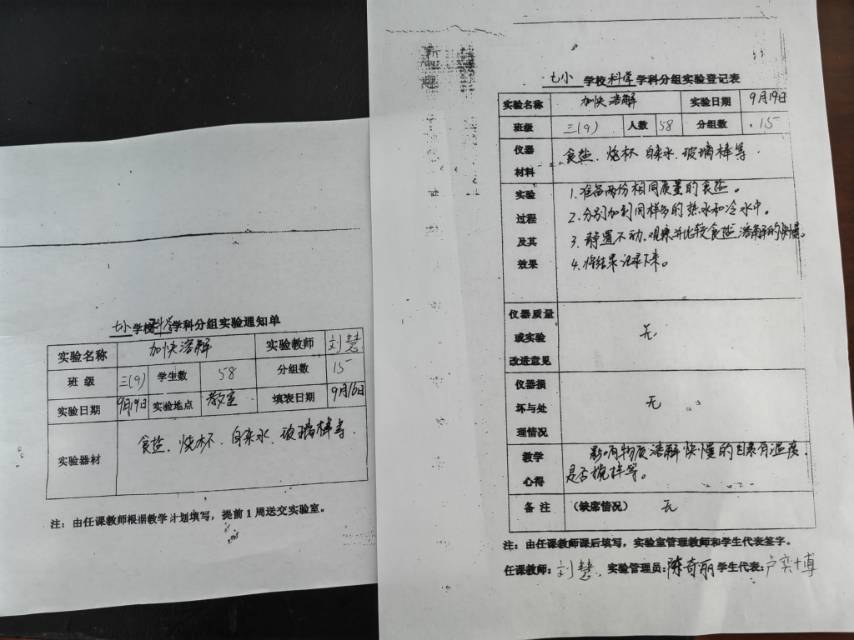 七小 学校科学学科分组实验通知单
实验名称 加快溶解 实验教师 刘慧
班 级 三(9) 学生数 58 分组数 15
实验日期 9月19日 实验地点 教室 填表日期 9月16日
实验器材 食盐、烧杯、自来水、玻璃棒等
注：由任课教师根据教学计划填写，提前1周送交实验室。
七小 学校科学学科分组实验登记表
实验名称 加快溶解 实验日期 9月19日
班级 三(9) 人数 58 分组数 15
仪器
材料
食盐、烧杯、自来水、玻璃棒等.
实验
过程
及其
效果
1.准备两份相同质量的食盐。
2.分别加到同样多的热水和冷水中。
3.静置不动,观察并比较食盐溶解的快慢。
4.将结果记录下来。
仪器质量
或实验
改进意见
无
仪器损
坏与处
理情况
无
教学
心得
影响物质溶解快慢的因素有温度、
是否搅拌等。
备 注 (缺席情况) 无
注：由任课教师课后填写，实验室管理教师和学生代表签字。
任课教师：刘慧. 实验管理员：陈奇丽 学生代表：卢奕博